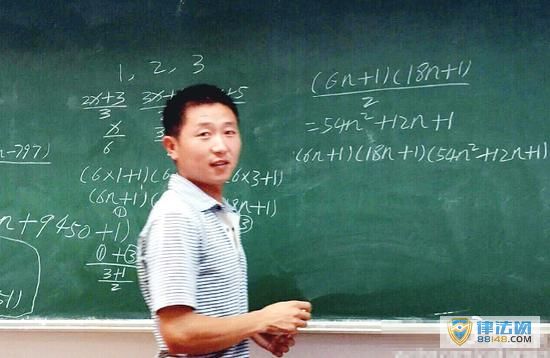 1, 2, 3
2x+3
3
x
6
n-797)
(6×1+1)(
6×3+1)
(6n+1)(
n+1)
①
③
n+9450+1)
①+③
3+1
2
51)
(6n+1)(18n+1)
2
=54n²+12n+1
(6n+1)(18n+1)(54n²+12n+1)
律法网
88148.com